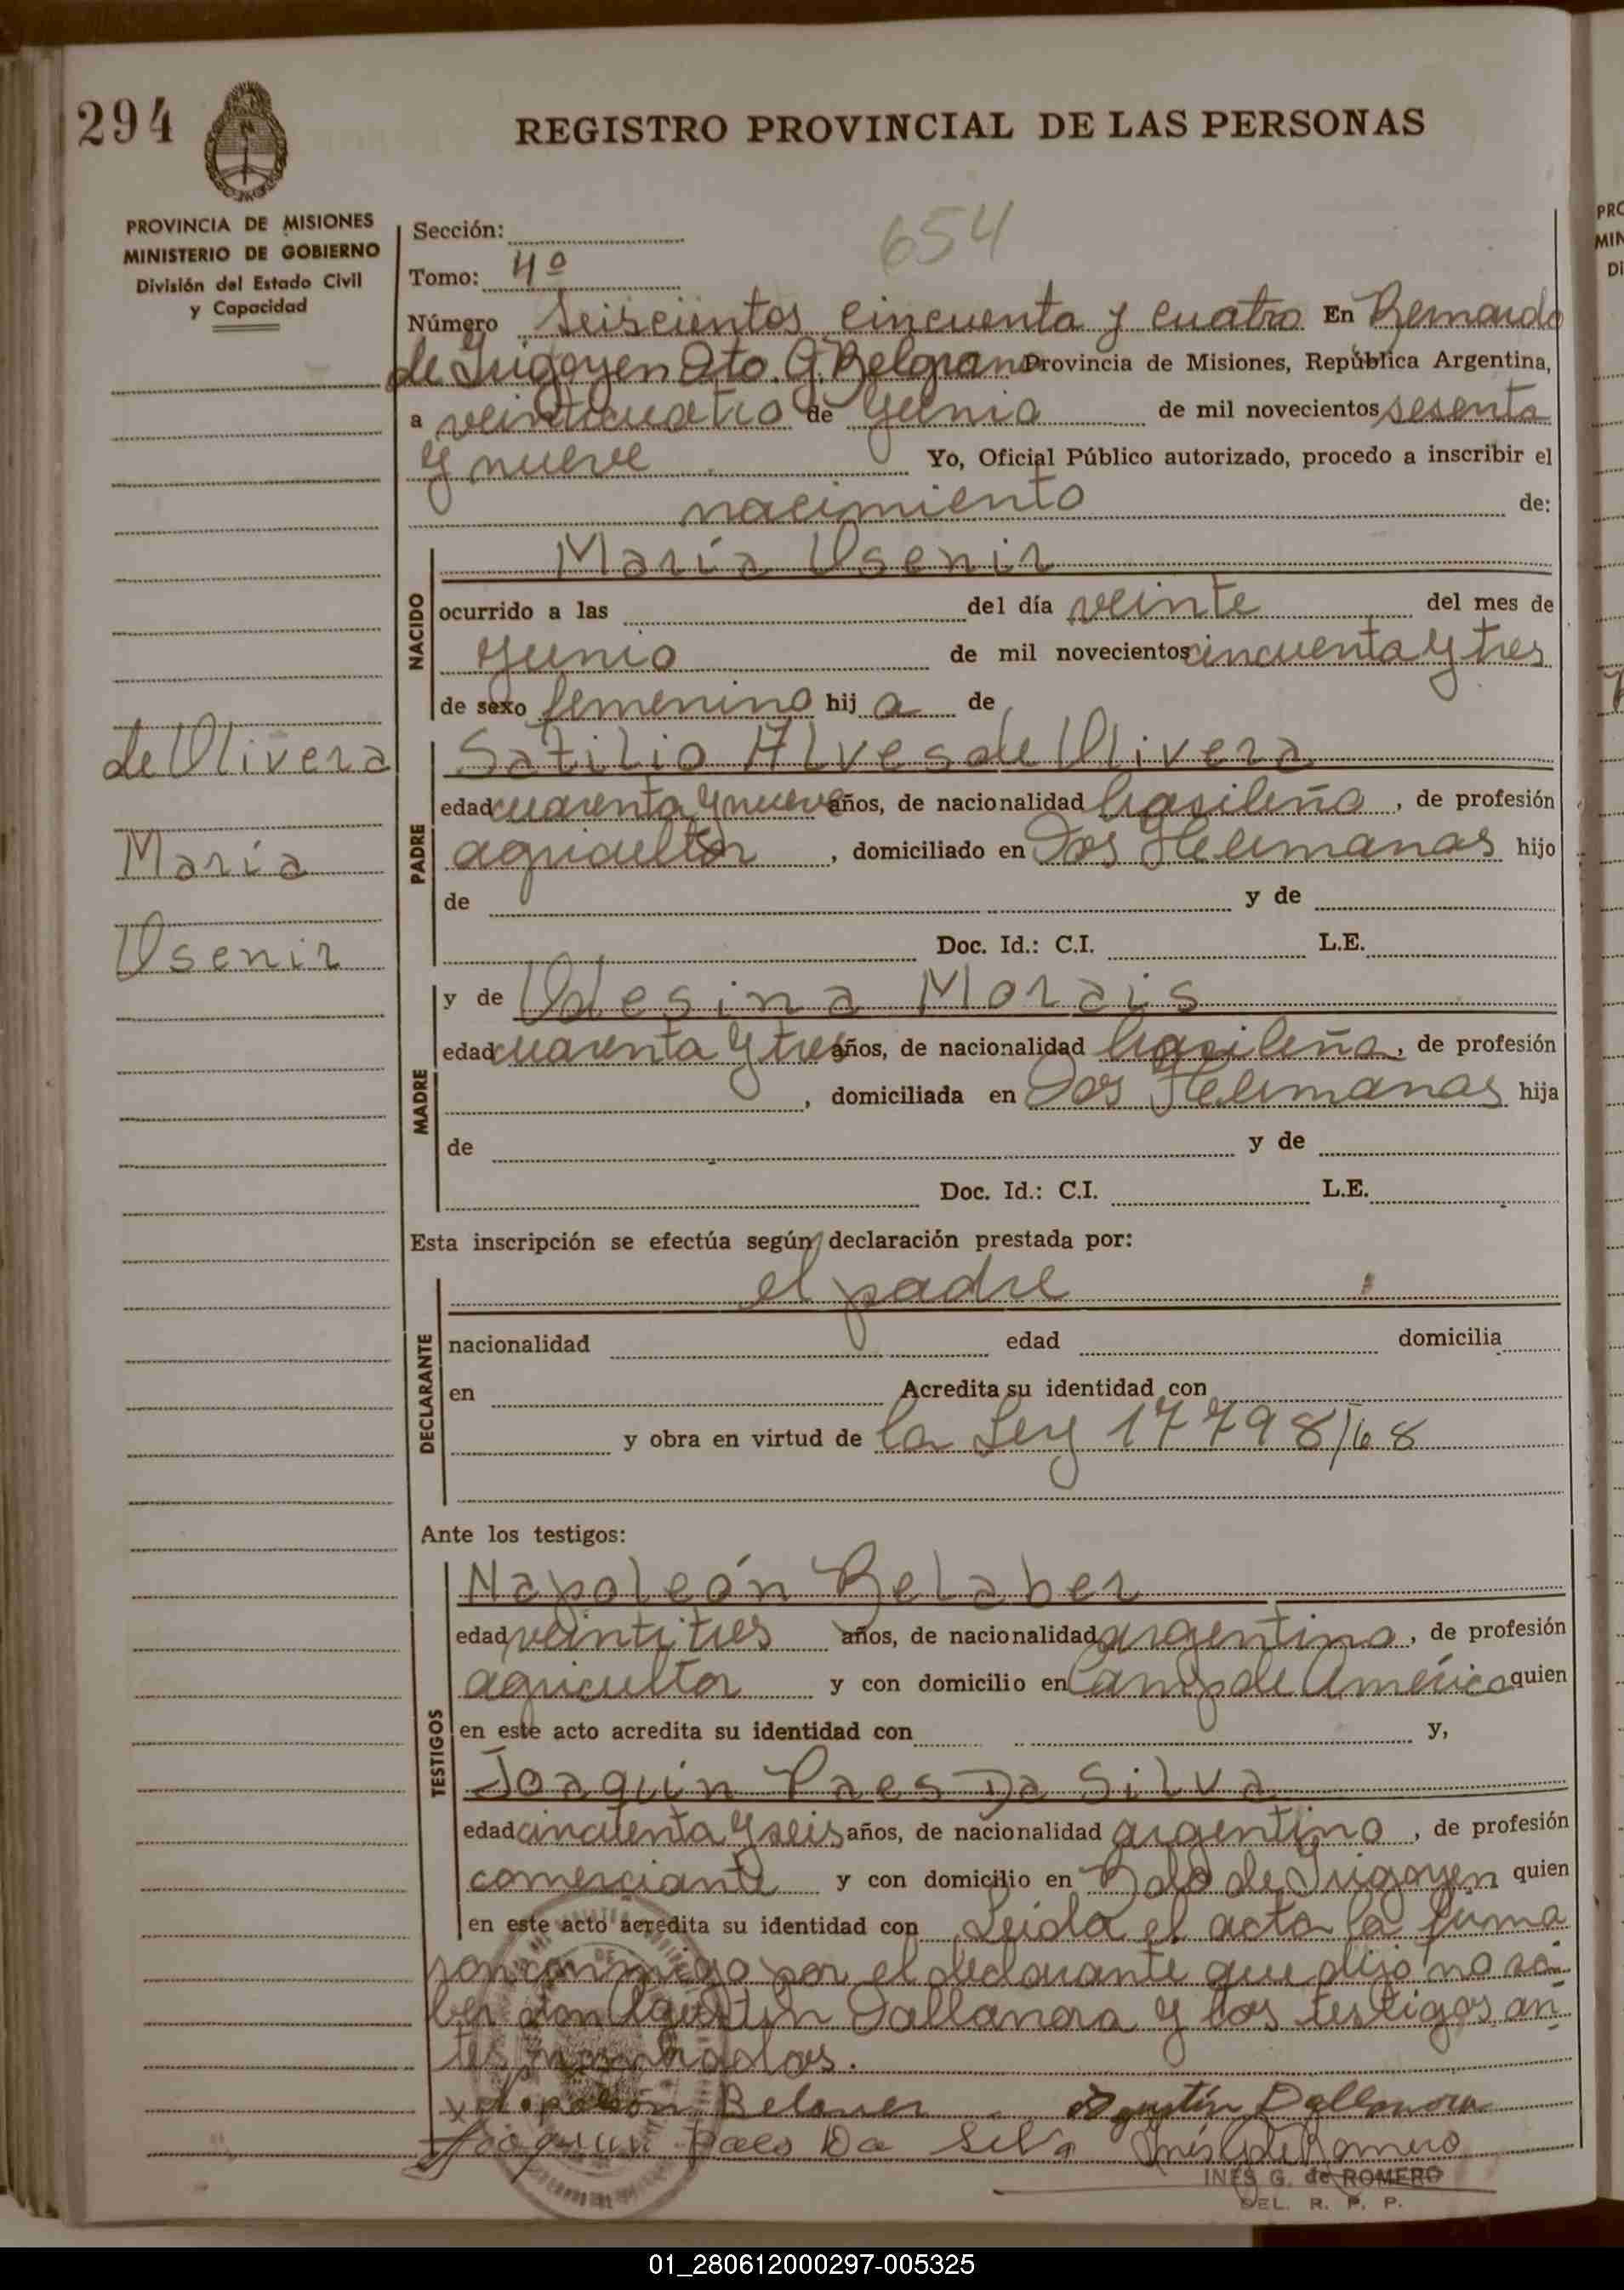 294
REGISTRO PROVINCIAL DE LAS PERSONAS
PROVINCIA DE MISIONES
MINISTERIO DE GOBIERNO
División del Estado Civil
y Capacidad
Sección:
654
Tomo: 4º
Número Seiscientos cincuenta y cuatro En Bernardo
de Irigoyen Dto. G. Belgrano Provincia de Misiones, República Argentina,
a veinticuatro de Junio de mil novecientos sesenta
y nueve Yo, Oficial Público autorizado, procedo a inscribir el
nacimiento de:
María Osenir
NACIDO
ocurrido a las del día veinte del mes de
Junio de mil novecientos cincuenta y tres
de sexo femenino hij a de
de Olivera
María
Osenir
PADRE
Satilio Alves de Olivera
edad cuarenta y nueve años, de nacionalidad brasileña, de profesión
agricultor, domiciliado en Dos Hermanas hijo
de y de
Doc. Id.: C.I. L.E.
MADRE
y de Odesina Morais
edad cuarenta y tres años, de nacionalidad brasileña, de profesión
, domiciliada en Dos Hermanas hija
de y de
Doc. Id.: C.I. L.E.
Esta inscripción se efectúa según declaración prestada por:
DECLARANTE
el padre
nacionalidad edad domicilia
en Acredita su identidad con
y obra en virtud de la Ley 17798/68
Ante los testigos:
TESTIGOS
Napoleón Belaber
edad veintitres años, de nacionalidad argentino, de profesión
agricultor y con domicilio en Camp de América quien
en este acto acredita su identidad con y,
Joaquín Paes Da Silva
edad cincuenta y seis años, de nacionalidad argentino, de profesión
comerciante y con domicilio en Bdo de Irigoyen quien
en este acto acredita su identidad con Leida el acta la firma
por el declarante que dijo no sa-
ber don Agustín Dallanora y los testigos an-
tes nombrados.
Napoleón Belaver Agustín Dallanora
Joaquin Paes Da Silva Inés G de Romero
INES G. de ROMERO
DEL. R. P. P.
01_280612000297-005325